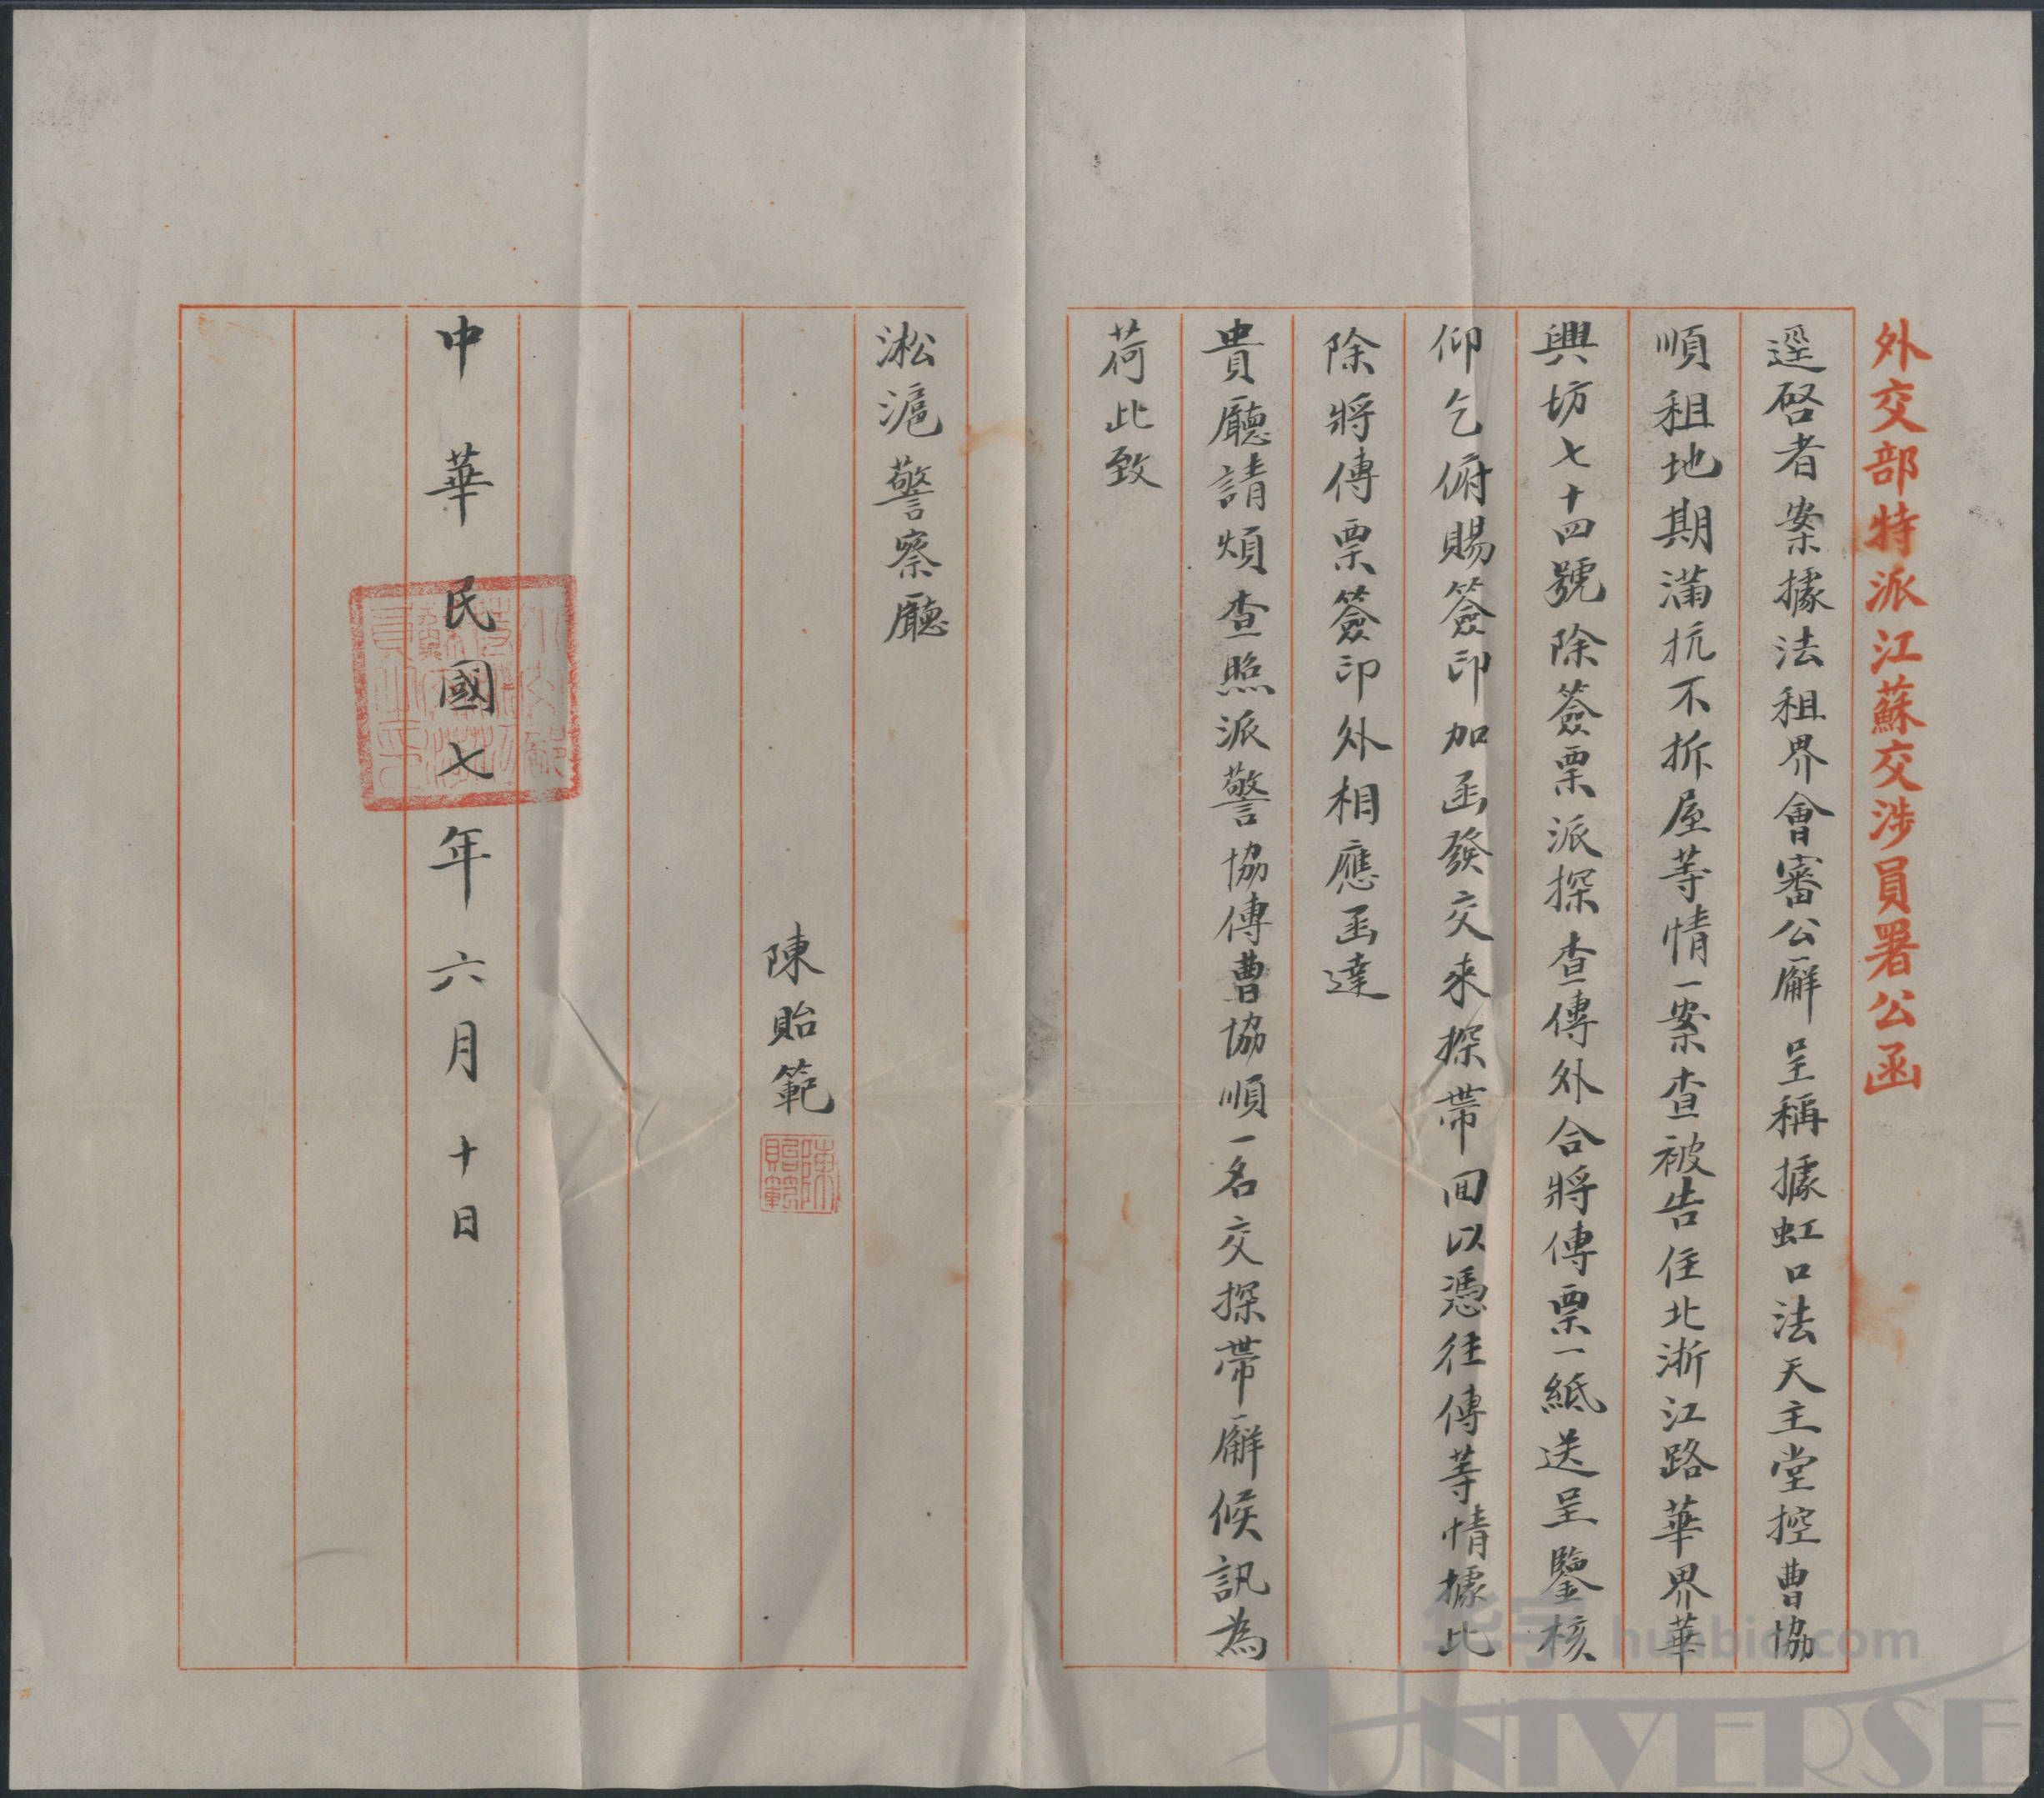 外交部特派江蘇交涉員署公函
逕啓者案據法租界會審公廨呈稱據虹口法天主堂控曹協
順租地期滿抗不拆屋等情一案查被告住北浙江路華界華
興坊七十四號除簽票派探查傳外合將傳票一紙送呈鑒核
仰乞俯賜簽印加函發交來探帶回以憑往傳等情據此
除將傳票簽印外相應函達
貴廳請煩查照派警協傳曹協順一名交探帶廨候訊為
荷此致
淞滬警察廳
陳貽範
陳貽範
中華民國七年六月十日
华宇 huabid.com
UNIVERSE